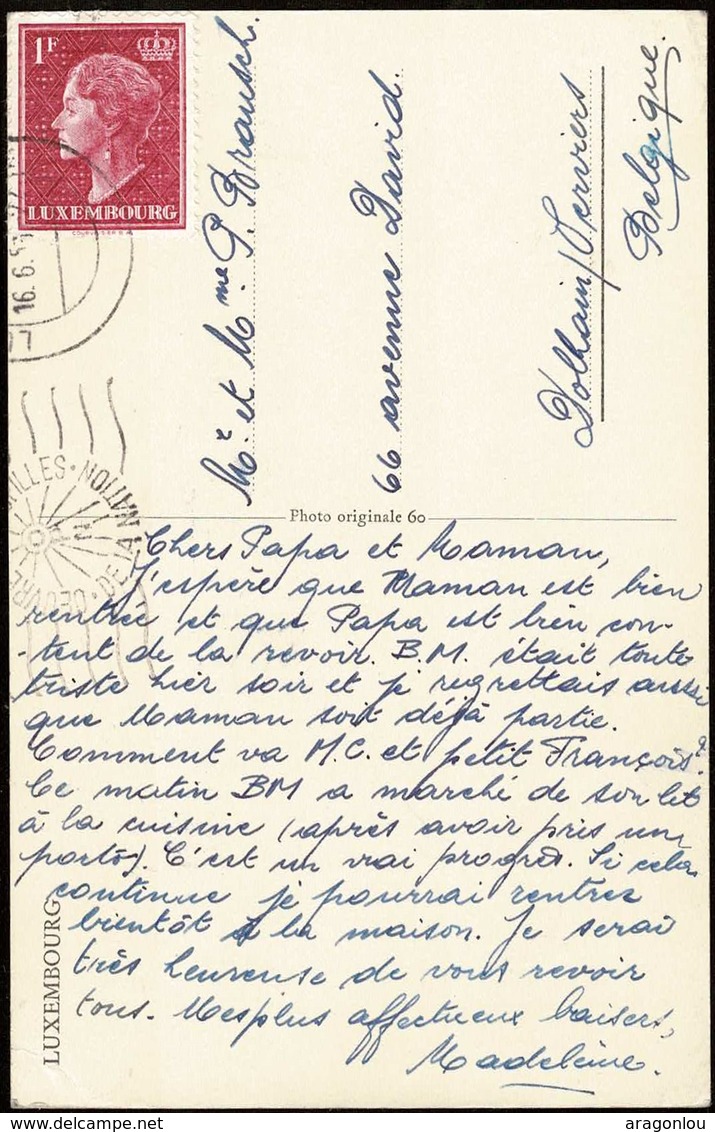 1F
LUXEMBOURG
COURVOISIER S.A.
16.6.5
Mr et Mme P. Brausch.
66 avenue David.
Dolhain/Verviers
Belgique.
Photo originale 60
LUXEMBOURG
Chers Papa et Maman,
J'espère que Maman est bien
rentrée et que Papa est bien con-
-tent de la revoir. B.M. était toute
triste hier soir et je regrettais aussi
que Maman soit déjà partie.
Comment va M.C. et petit François?
Ce matin BM a marché de son lit
à la cuisine (après avoir pris un
porto). C'est un vrai progrès. Si cela
continue je pourrai rentrer
bientôt à la maison. Je serai
très heureuse de vous revoir
tous. Mes plus affectueux baisers,
Madeleine.
aragonlou